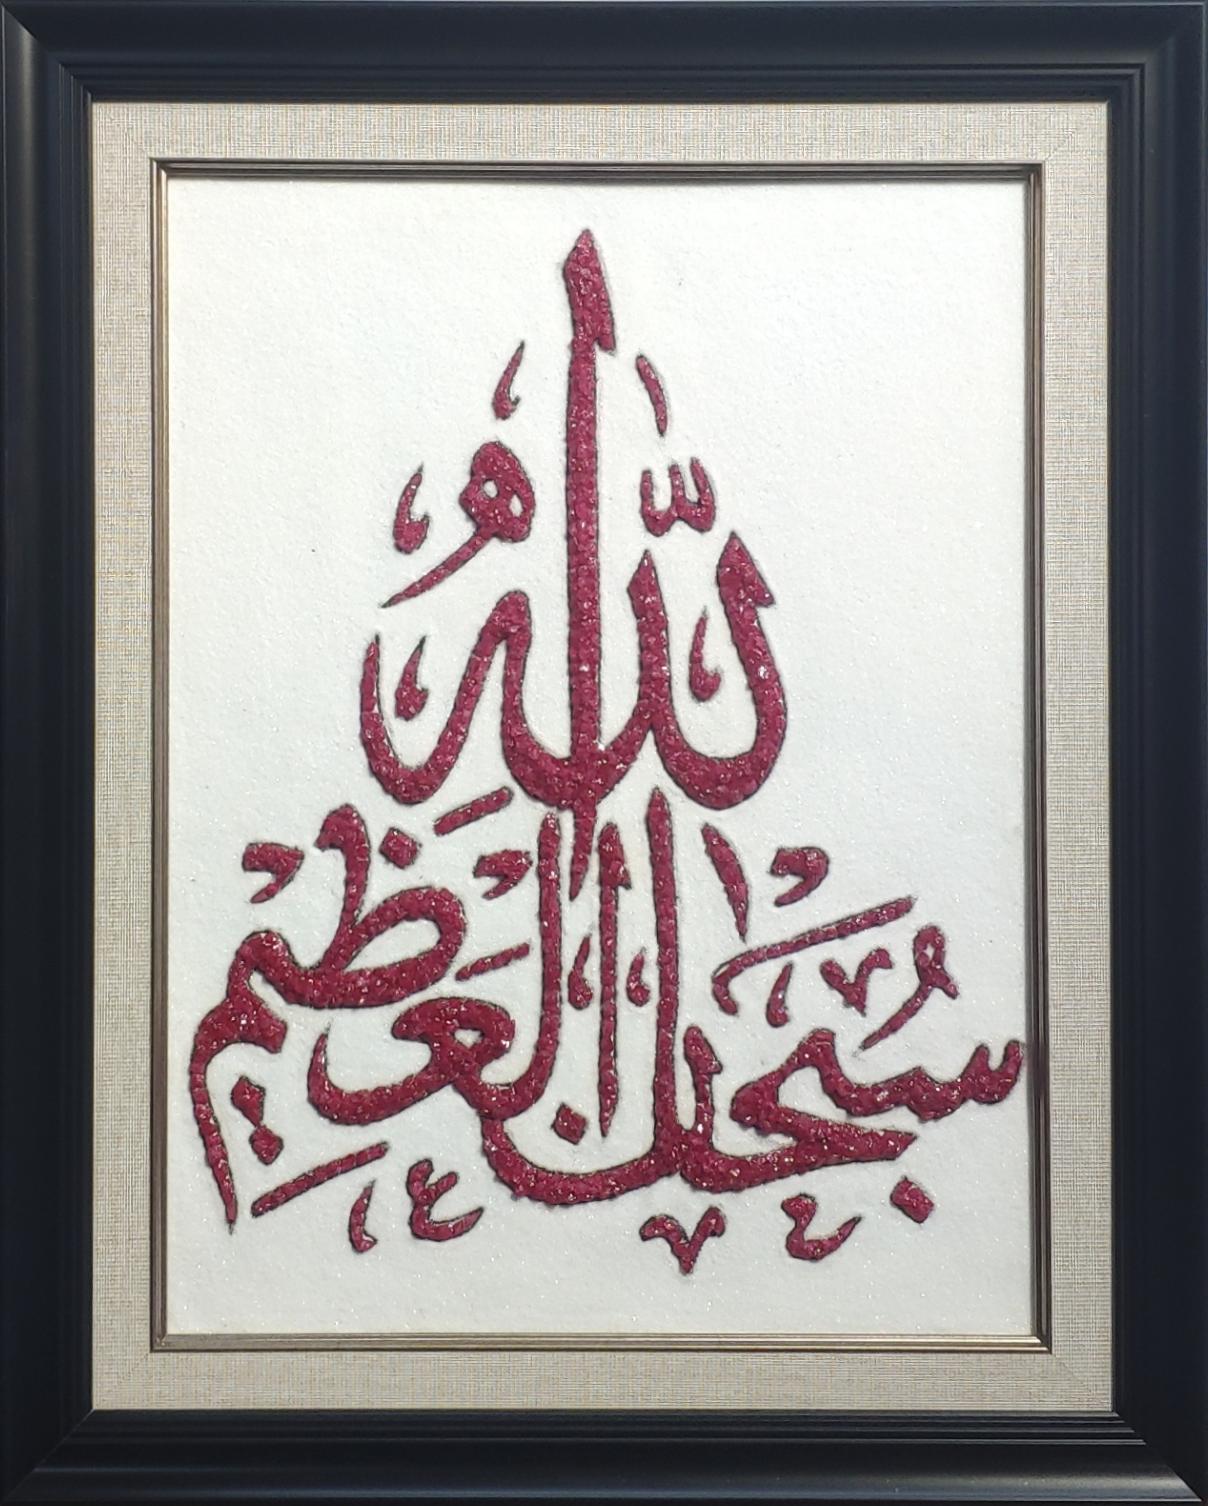 سُبْحَانَ اللّٰهِ الْعَظِيمِ